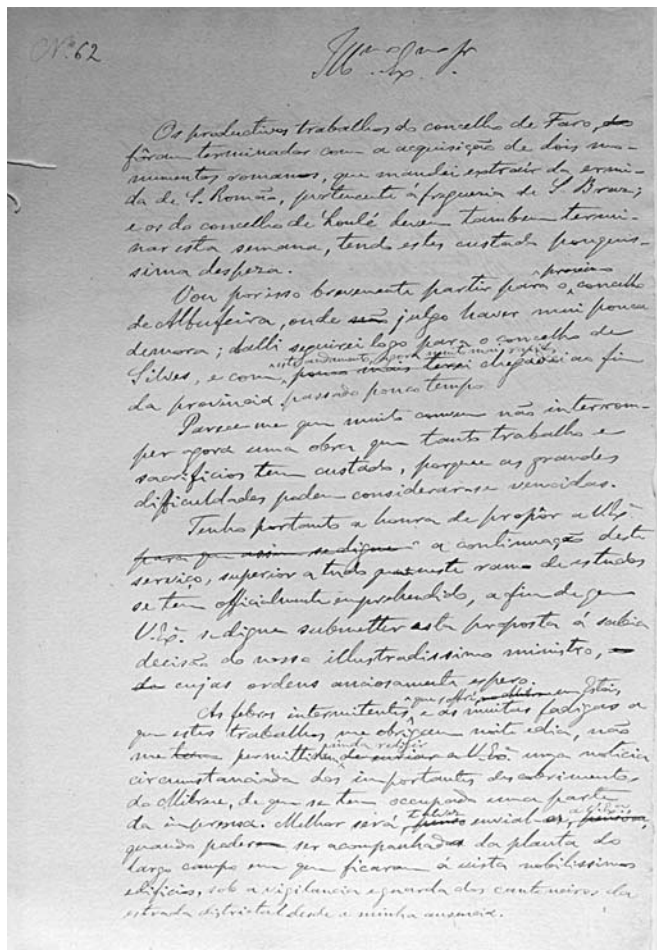 Nº 62
Illmo Exmo Sr.
Os productivos trabalhos do concelho de Faro,
fôram terminados com a acquisição de dois mo-
numentos romanos, que mandei extrair da ermi-
da de S. Romão, pertencente á freguezia de S. Braz;
e os do concelho de Loulé devem tambem termi-
nar esta semana, tendo estes custado pequenis-
sima despeza.
Vou por isso brevemente partir para o proximo concelho
de Albufeira, onde julgo haver mui pouca
demora; dalli seguirei logo para o concelho de
neste andamento, agora muito mais rapido
Silves, e com pouco mais terei chegado ao fim
da provincia passado pouco tempo.
Parece-me que muito convem não interrom-
per agora uma obra que tanto trabalho e
sacrificios tem custado, porque as grandes
difficuldades podem considerar-se vencidas.
Tenho portanto a honra de propôr a V. Exª
para que assim se digne a continuação deste
serviço, superior a tudo que neste ramo de estudos
se tem officialmente emprehendido, a fim de que
V. Exª se digne submetter esta proposta á sabia
decisão do nosso illustradissimo ministro,
cujas ordens anciosamente espero.
que soffri em Estoi,
As febres intermitentes, e as muitas fadigas a
que estes trabalhos me obrigam noite e dia, não
me permittiram ainda redigir de enviar a V. Exª uma noticia
circumstanciada dos importantes descobrimentos
do Milreu, de que se tem occupado uma parte
da imprensa. Melhor será, talvez enviar-a a V. Exª
quando poder ser acompanhada da planta do
largo campo em que ficaram á vista nobilissimos
edificios, sob a vigilancia e guarda dos cantoneiros da
estrada districtal desde a minha ausencia.